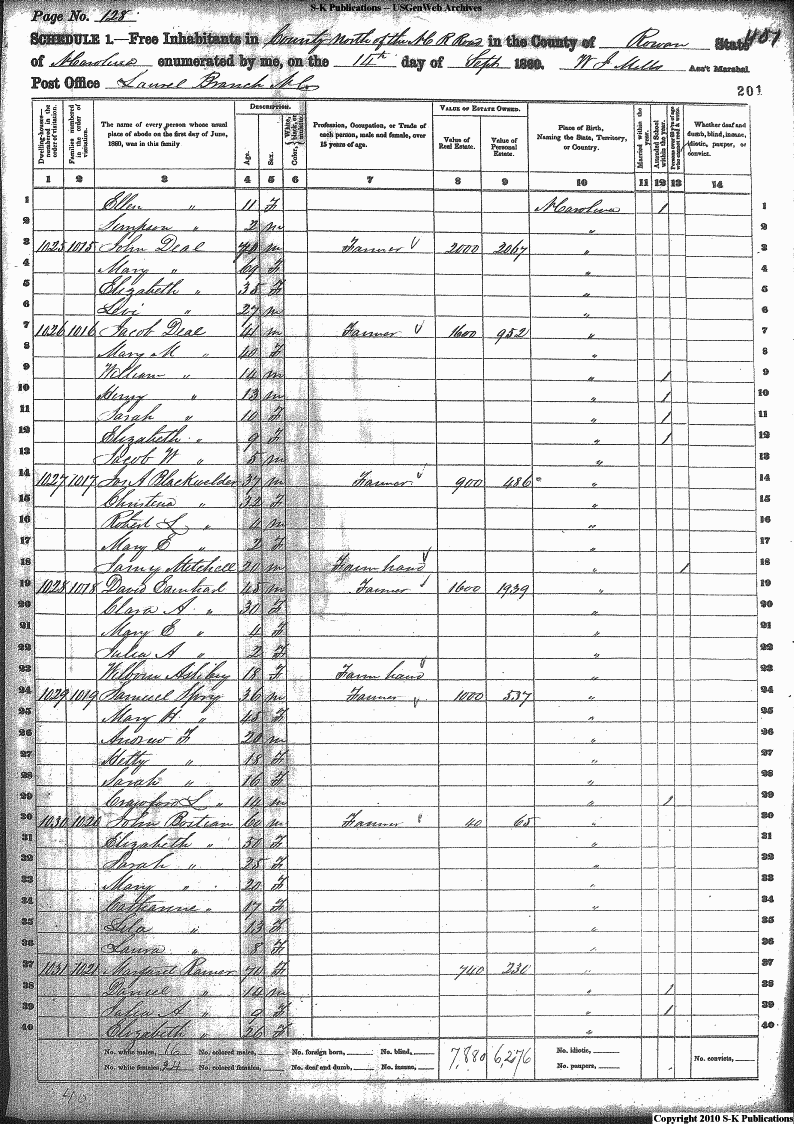 S-K Publications – USGenWeb Archives
Page No. 128
SCHEDULE 1.—Free Inhabitants in County North of the N C R Road in the County of Rowan State
of N Carolina enumerated by me, on the 14th day of Sept 1860. W J Mills Ass't Marshal.
Post Office Laurel Branch N Co
201
Dwelling-houses numbered in the order of visitation. Families numbered in the order of visitation. The name of every person whose usual place of abode on the first day of June, 1860, was in this family Description. Age. Sex. Color, White, black, or mulatto. Profession, Occupation, or Trade of each person, male and female, over 15 years of age. VALUE OF ESTATE OWNED. Value of Real Estate. Value of Personal Estate. Place of Birth, Naming the State, Territory, or Country. Married within the year. Attended School within the year. Whether deaf and dumb, blind, insane, idiotic, pauper, or convict.
1 2 3 4 5 6 7 8 9 10 11 12 13 14
1 Ellen " 11 F N Carolina / 1
2 Simpson " 2 m " 2
3 1025 1015 John Deal m Farmer 2000 2067 " 3
4 Mary " 69 F " 4
5 Elizabeth " 38 F " 5
6 Levi " 27 m " 6
7 1026 1016 Jacob Deal 41 m Farmer 1600 952 " 7
8 Mary M " 40 F " 8
9 William " 14 m " / 9
10 Henry " 13 m " / 10
11 Sarah " 10 F " / 11
12 Elizabeth " 9 F " / 12
13 Jacob W " 5 m " 13
14 1027 1017 Jos A Blackwelder 37 m Farmer 900 486 " 14
15 Christena " 32 F " 15
16 Robert L " 4 m " 16
17 Mary E " 2 F " 17
18 Mitchell 20 m Farm hand " / 18
19 1028 1018 David Earnhart 45 m Farmer 1600 1939 " 19
20 Clara A " 30 F 20
21 Mary E " 4 F " 21
22 Julia A " 2 F " 22
23 Welborn 18 F Farm hand " 23
24 1029 1019 Samuel 36 m Farmer 1000 537 " 24
25 Mary H " 45 F " 25
26 Andrew F 20 m " 26
27 Hetty " 18 F " 27
28 Sarah " 16 F " 28
29 Crawford L " 14 m " / 29
30 1030 1020 John Bostian 60 m Farmer 40 65 " 30
31 Elizabeth " 50 F " 31
32 Sarah " 25 F " 32
33 Mary " 20 F " 33
34 Catharine " 17 F " 34
35 Lila " 13 F " 35
36 Laura " 8 F " 36
37 1031 1021 Margaret 70 F 740 230 " 37
38 Daniel " 14 m " / 38
39 Julia A " 9 F " / 39
40 Elizabeth " 26 F " 40
No. white males, 16 No. colored males, No. foreign born, No. blind, 7,880 6,276 No. idiotic, No. convicts,
No. white females, 24 No. colored females, No. deaf and dumb, No. insane, No. paupers,
40
Copyright 2010 S-K Publications